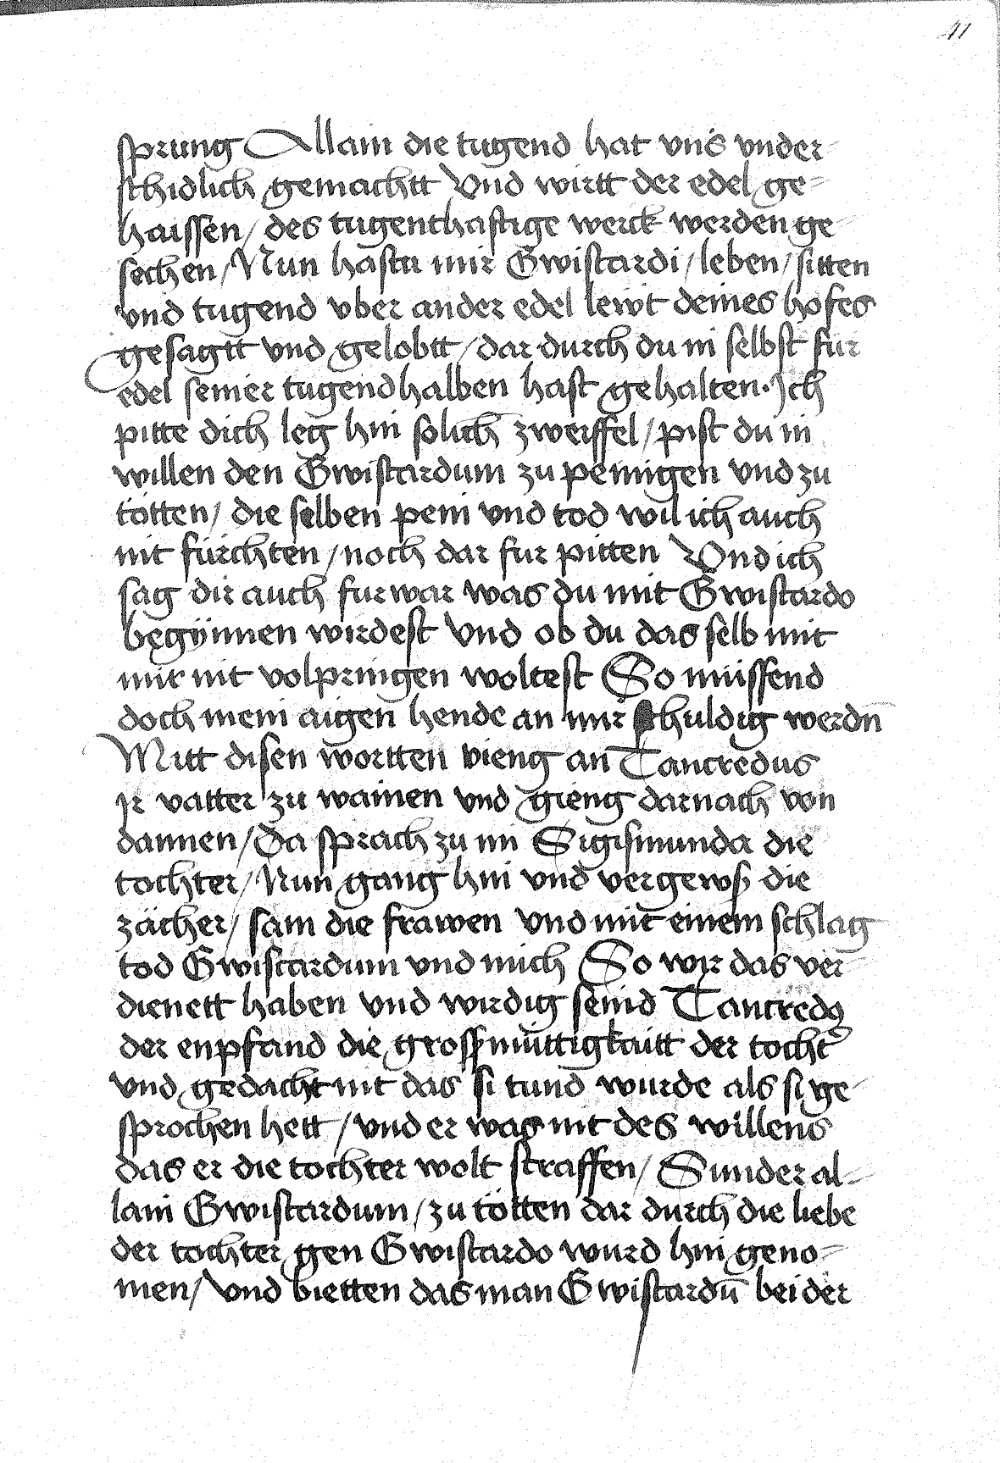 41
sprung Allain die tugend hat vns vnder-
schidlich gemachtt Vnd wirtt der edel ge-
haissen / des tugenthaftige werck werden ge-
sechen / Nun hastu mir Gwistardi / leben / sitten
vnd tugend vber ander edel lewt deines hofes
gesagtt vnd gelobtt / dar durch du in selbst für
edel seiner tugendhalben hast gehalten. Ich
pitte dich leg hin solich zweiffel / pist du in
willen den Gwistardum zu peinigen vnd zu
tötten / die selben pein vnd tod wil ich auch
nit fürchten / noch dar fur pitten Vnd ich
sag dir auch furwar was du mit Gwistardo
begÿnnen wirdest Vnd ob du das selb mit
mir nit volpringen woltest So müssend
doch mein aigen hende an mir schuldig werdn̄
Mitt disen wortten vieng an Tancredus
jr vatter zu wainen vnd gieng darnach von
dannen / Da sprach zu im Sigismunda die
tochter / Nun gang hin vnd vergewß die
zächer / sam die frawen vnd mit einem schlag
tod Gwistardum vnd mich So wir das ver-
dienett haben vnd wirdig seind Tancredꝯ
der enpfand die großmüttigkaitt der tocht͛
vnd gedacht nit das si tund wurde als si ge-
sprochen hett / vnd er was nit des willens
das er die tochter wolt straffen / Sunder al-
lain Gwistardum / zu tötten dar durch die liebe
der tochter gen Gwistardo wurd hin geno-
men / Vnd bietten das man Gwistardū bei der